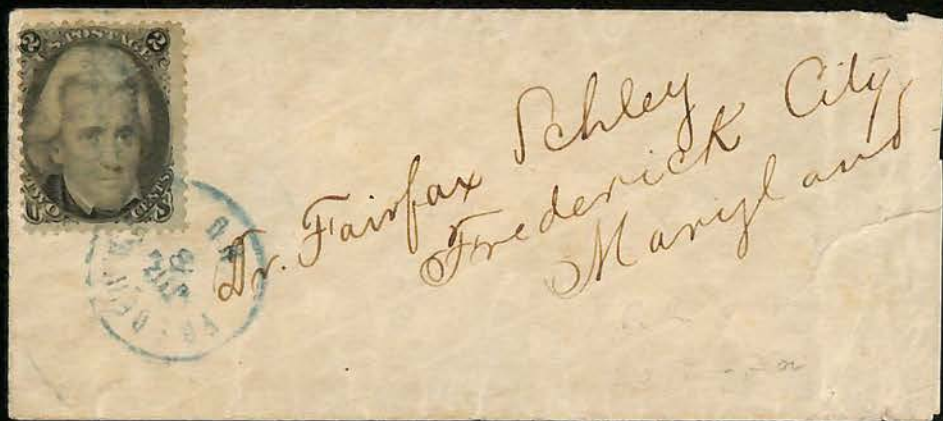 2 U.S. POSTAGE 2
TWO CENTS
Dr. Fairfax Schley
Frederick City
Maryland